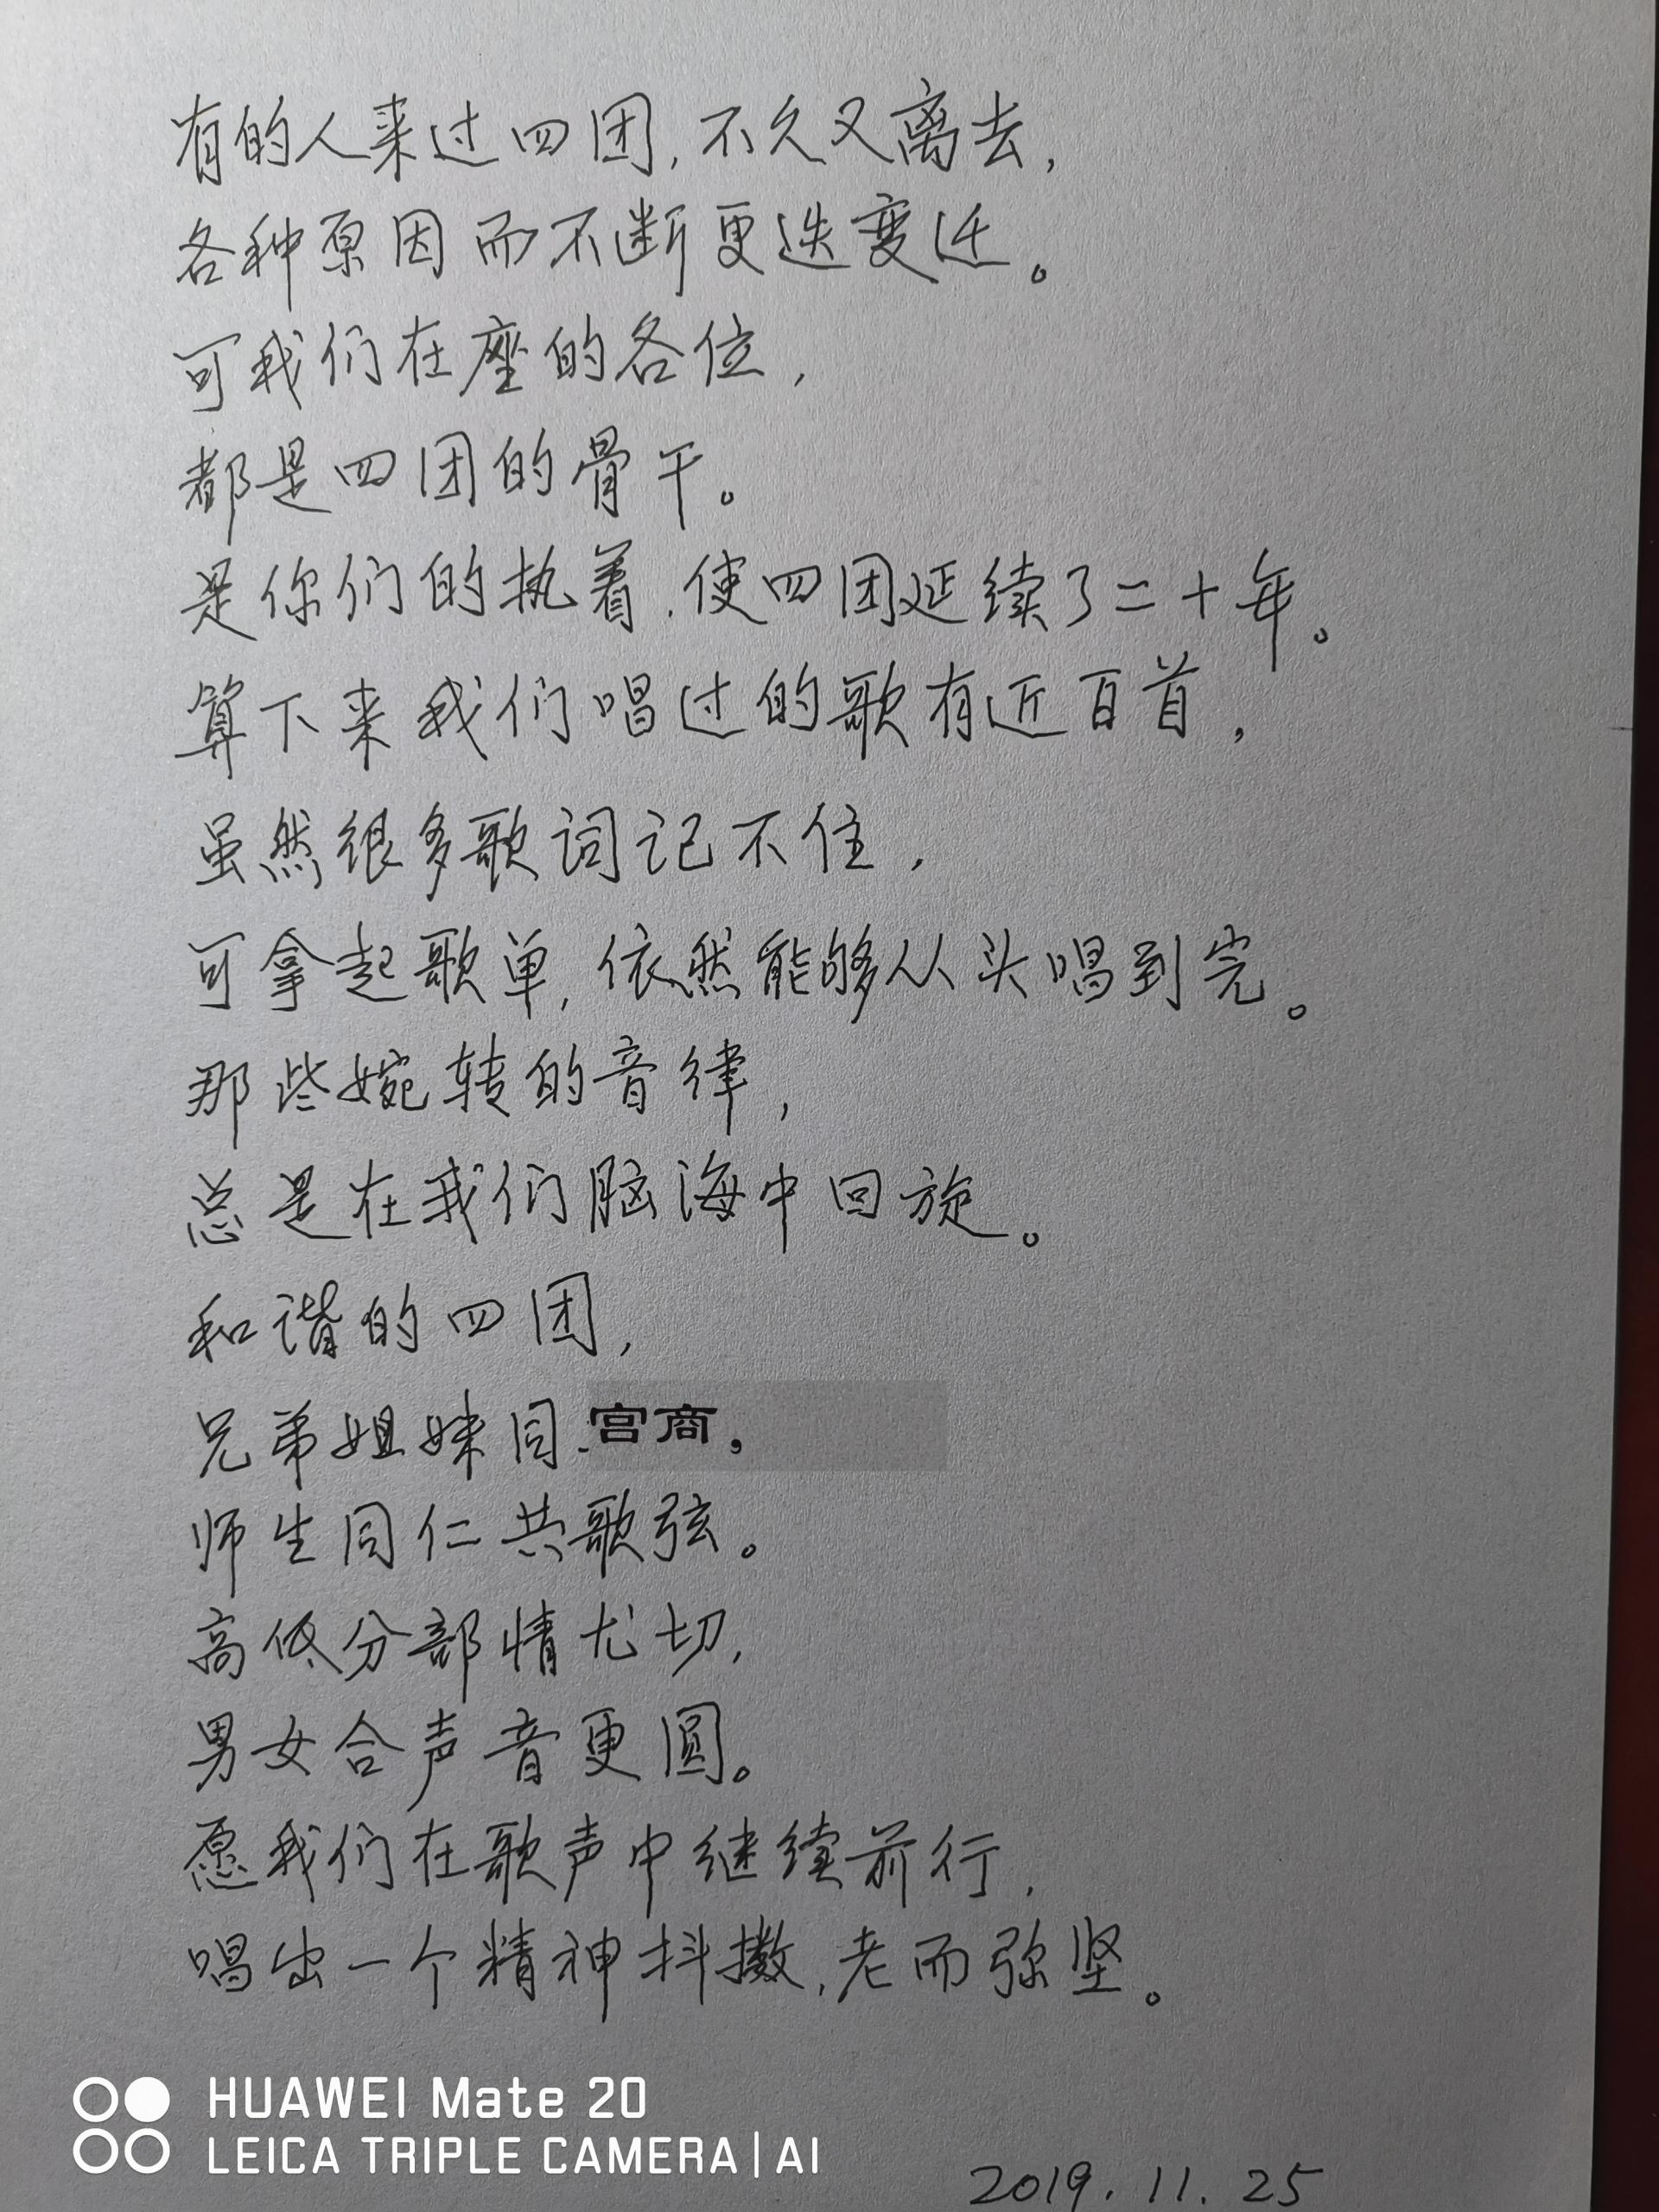 有的人来过四团，不久又离去，
各种原因而不断更迭变迁。
可我们在座的各位，
都是四团的骨干。
是你们的执着，使四团延续了二十年。
算下来我们唱过的歌有近百首，
虽然很多歌词记不住，
可拿起歌单，依然能够从头唱到完。
那些婉转的音律，
总是在我们脑海中回旋。
和谐的四团，
兄弟姐妹同宫商，
师生同仁共歌弦。
高低分部情尤切，
男女合声音更圆。
愿我们在歌声中继续前行，
唱出一个精神抖擞，老而弥坚。
HUAWEI Mate 20
LEICA TRIPLE CAMERA | AI
2019.11.25